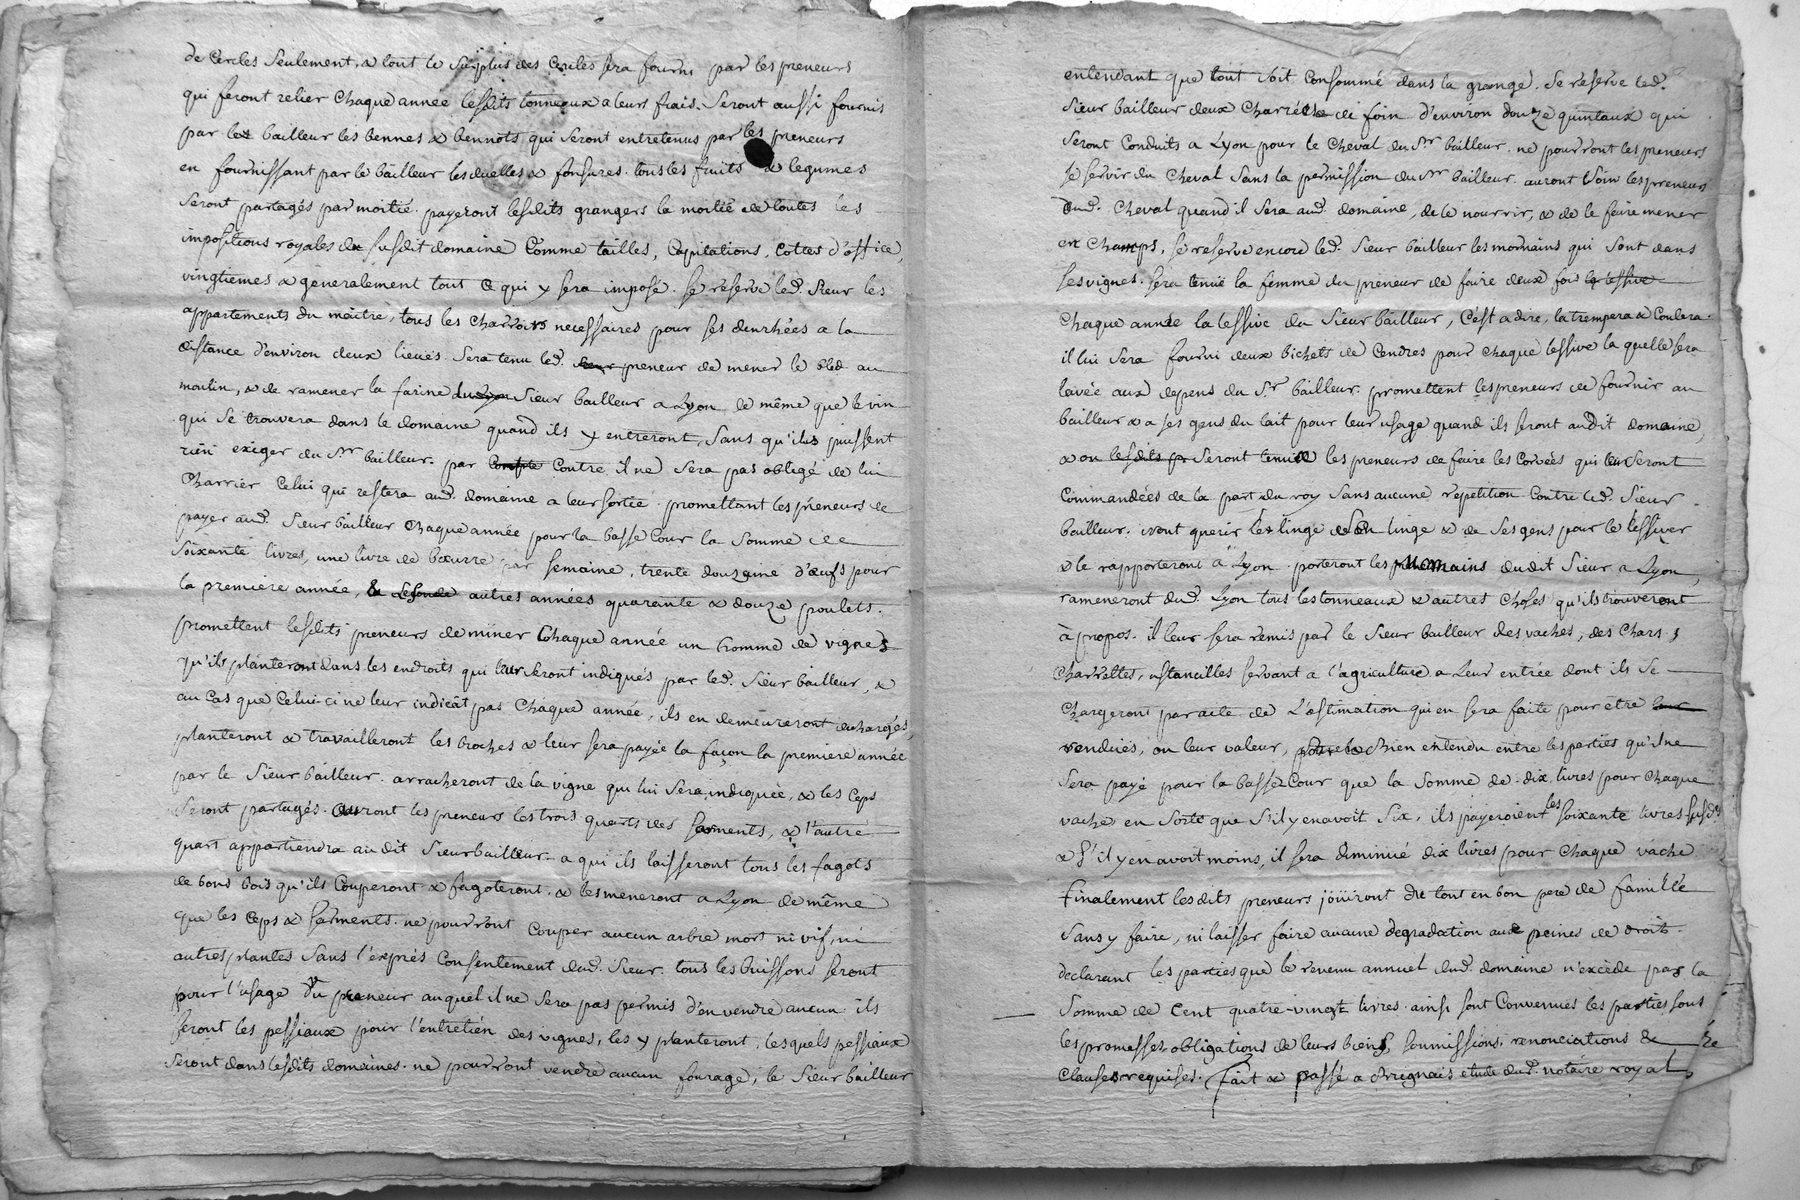 de Cercles seulement, & tout le surplus des Cercles sera fourni par les preneurs
qui feront relier chaque année lesdits tonneaux a leurs frais. Seront aussi fournis
par le bailleur les bennes & bennots qui seront entretenus par les preneurs
en fournissant par le bailleur les duelles & fonsures. tous les fruits & legumes
seront partagés par moitié. payeront lesdits grangers la moitié de toutes les
impositions royales du susdit domaine Comme tailles, Capitations, Cottes d'office,
vingtiemes & generalement tout ce qui y sera imposé. se reserve led. sieur les
appartements du maitre, tous les charrois necessaires pour ses denrhées a la
distance d'environ deux lieuës. Sera tenu led. preneur de mener le bled au
moulin, & de ramener la farine du Sieur bailleur a Lyon de même que le vin
qui se trouvera dans le domaine quand ils y entreront, sans qu'ils puissent
rien exiger du Sr bailleur. par contre il ne sera pas obligé de lui
charrier celui qui restera aud. domaine a leur sortie. promettant les preneurs de
payer aud. Sieur bailleur chaque année pour la basse Cour la somme de
soixante livres, une livre de bœurre par semaine, trente douzaine d'œufs pour
la premiere année, & autres années quarante & douze poulets.
promettent lesdits preneurs de miner chaque année un homme de vignes
qu'ils planteront dans les endroits qui leur seront indiqués par led. Sieur bailleur, &
au cas que celui-ci ne leur indicât pas chaque année, ils en demeureront dechargés,
planteront & travailleront les broches & leur sera payée la façon la premiere année
par le Sieur bailleur. arracheront de la vigne qui lui sera indiquée, & les ceps
seront partagés. auront les preneurs les trois quarts des sarments, & l'autre
quart appartiendra audit Sieur bailleur a qui ils laisseront tous les fagots
de bons bois qu'ils Couperont & fagoteront, & les meneront a Lyon de même
que les ceps & sarments. ne pourront couper aucun arbre mort ni vif, ni
autres plantes sans l'exprés consentement dud. Sieur. tous les buissons seront
pour l'usage du preneur auquel il ne sera pas permis d'en vendre aucun. ils
feront les pessiaux pour l'entretien des vignes, les y planteront, lesquels pessiaux
seront dans lesdits domaines. ne pourront vendre aucun fourage, le Sieur bailleur
entendant que tout soit Consommé dans la grange. se reserve led.
Sieur bailleur deux charrées de foin d'environ douze quintaux qui
seront conduits a Lyon pour le Cheval du Sr bailleur. ne pourront les preneurs
se servir du Cheval sans la permission du Sr bailleur. auront soin les preneurs
dud. Cheval quand il sera aud. domaine, de le nourrir, & de le faire mener
en champs, se reserve encore led. Sieur bailleur les mornains qui sont dans
ses vignes. sera tenuë la femme du preneur de faire deux fois la lessive
chaque année la lessive du Sieur bailleur, c'est a dire, la trempera & Coulera.
il lui sera fourni deux bichets de Cendres pour chaque lessive la quelle sera
lavée aux depens du Sr bailleur. promettent les preneurs de fournir au
bailleur & a ses gens du lait pour leur usage quand ils seront audit domaine,
& ou lesdits pr seront tenus les preneurs de faire les corvées qui leur seront
commandées de la part du roy sans aucune repetition contre led. Sieur
bailleur. iront querir le linge de son linge & de ses gens pour le lessiver
& le rapporteront a Lyon. porteront les mornains dudit Sieur a Lyon,
rameneront dud. Lyon tous les tonneaux & autres choses qu'ils trouveront
à propos. il leur sera remis par le Sieur bailleur des vaches, des chars,
charrettes, ustancilles servant a l'agriculture a leur entrée dont ils se
chargeront par acte de l'estimation qui en sera faite pour etre
renduës, ou leur valeur, bien entendu entre les parties qu'il ne
sera payé pour la basse Cour que la somme de dix livres pour chaque
vache en sorte que s'il y en avoit six, ils payeroient les soixante livres susd.
& s'il y en avoit moins, il sera diminué dix livres pour chaque vache
finalement lesdits preneurs joüiront du tout en bon pere de famille
sans y faire, ni laisser faire aucune degradation aux peines de droit.
declarant les parties que le revenu annuel dud. domaine n'excède pas la
somme de Cent quatre-vingt livres. ainsi sont Convenues les parties sous
les promesses obligations de leurs biens, soumissions, renonciations &
clauses requises. fait & passé a Brignais etude dud. notaire royal,